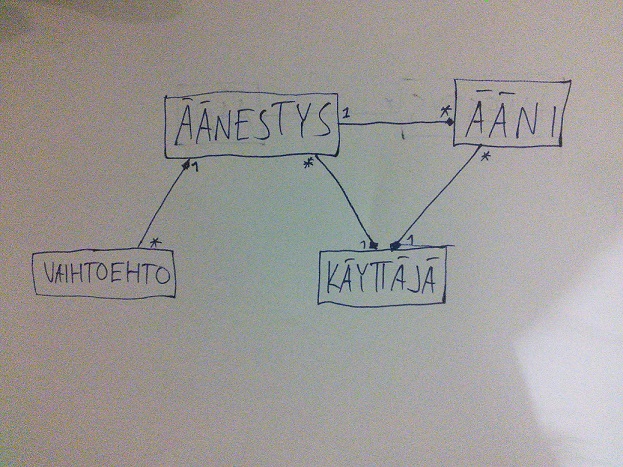 ÄÄNESTYS
1
*
ÄÄNI
1
*
*
*
1
1
VAIHTOEHTO
KÄYTTÄJÄ